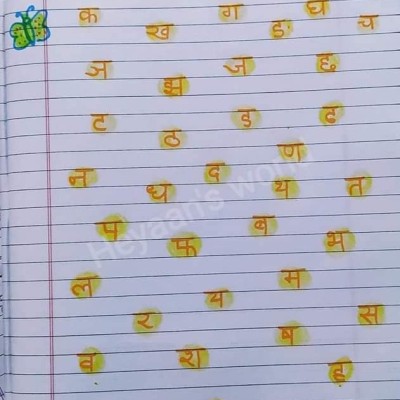 क ख ग ङ घ च
ञ झ ज छ
ट ठ ड ढ
ण
न ध द थ त
प फ ब भ
ल र य म स
व श ष ह
Heyaan's world